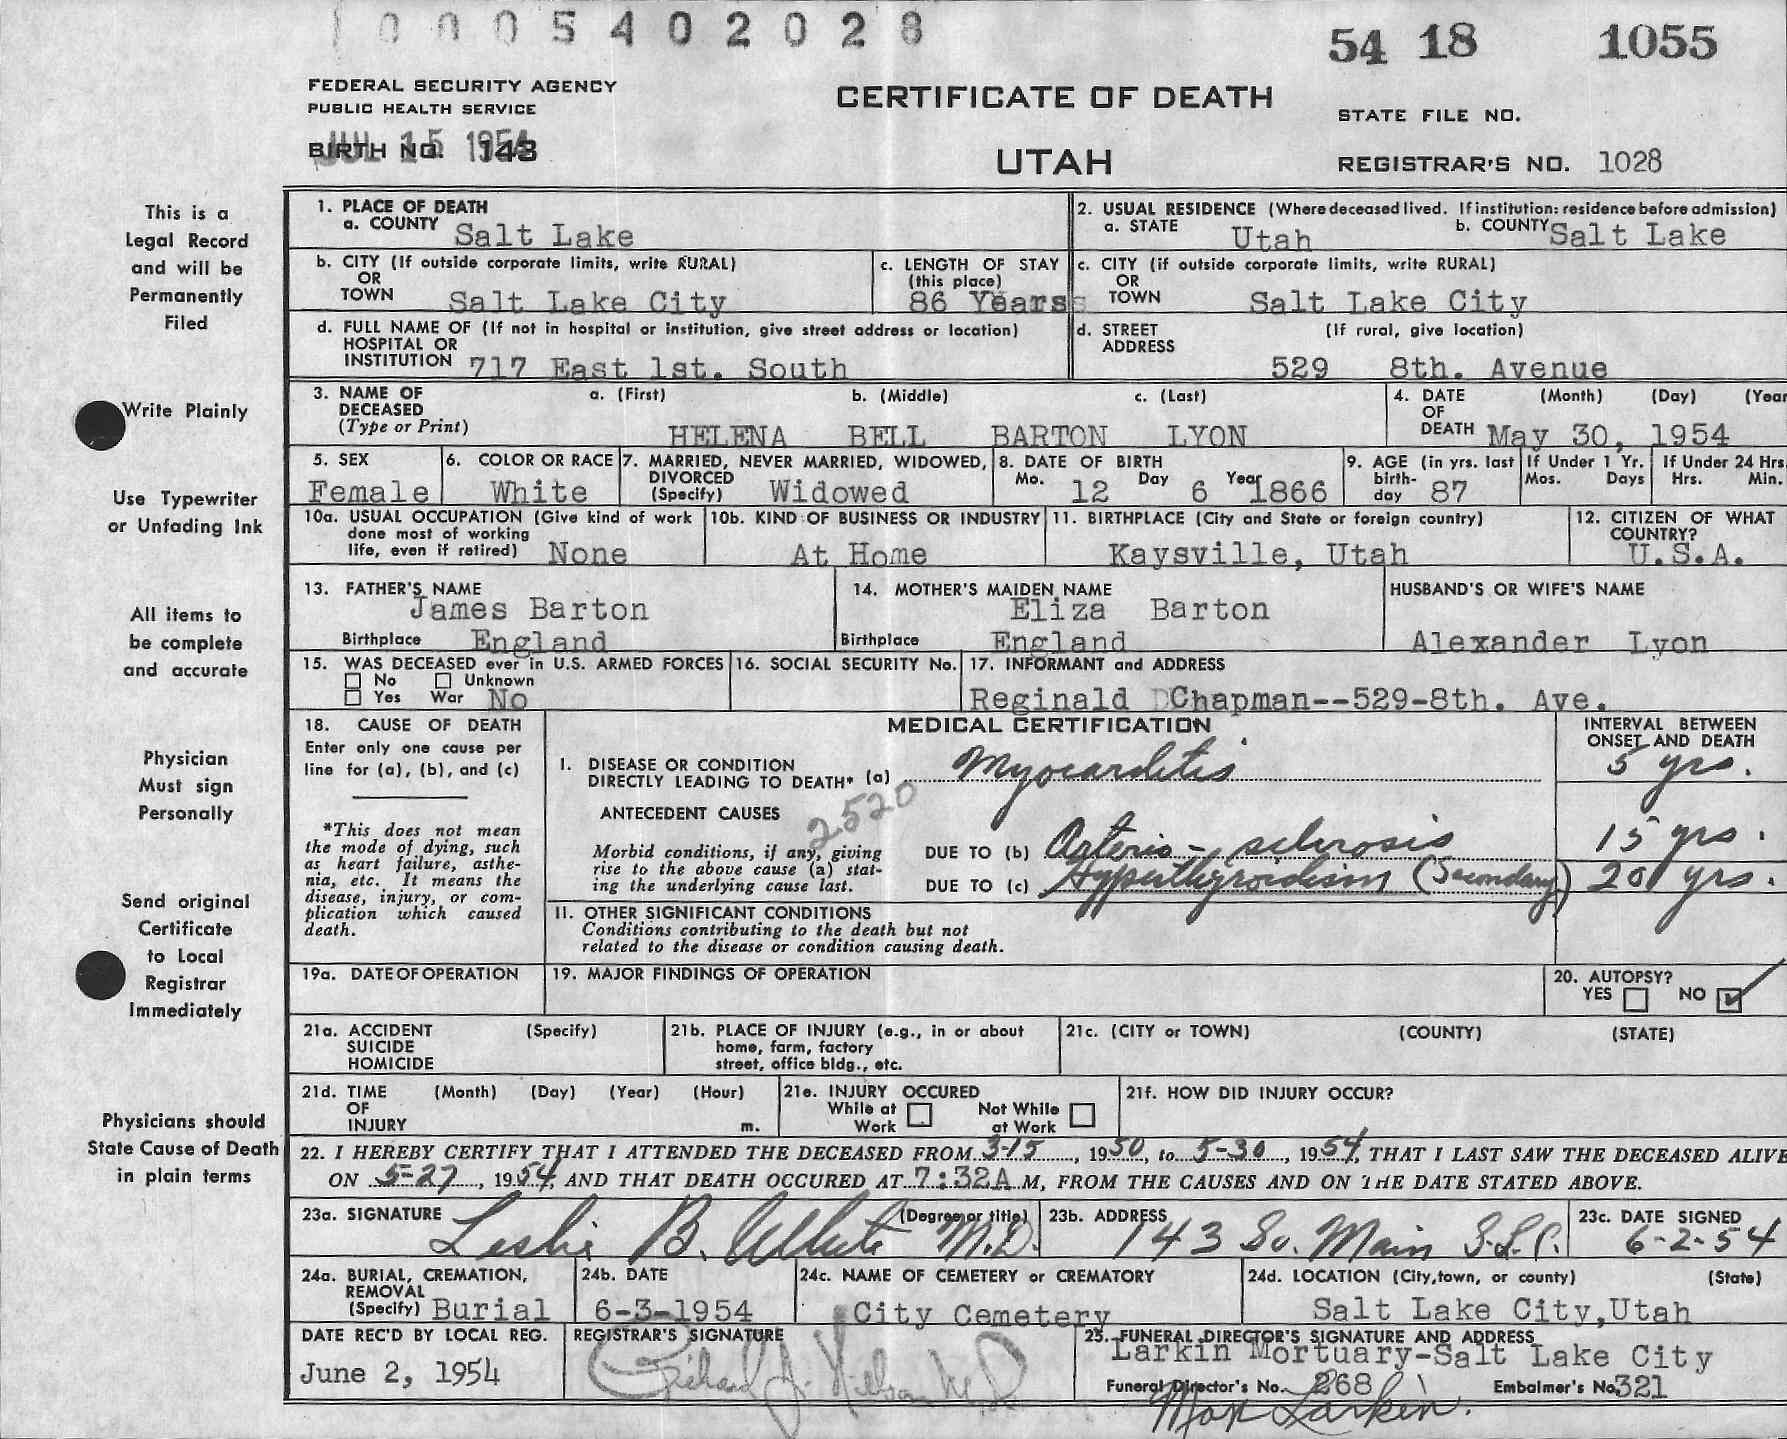 10005402028
54 18 1055
FEDERAL SECURITY AGENCY
PUBLIC HEALTH SERVICE
CERTIFICATE OF DEATH
STATE FILE NO.
JUL 15 1954
BIRTH NO. 143
UTAH
REGISTRAR'S NO. 1028
This is a
Legal Record
and will be
Permanently
Filed
Write Plainly
Use Typewriter
or Unfading Ink
All items to
be complete
and accurate
Physician
Must sign
Personally
Send original
Certificate
to Local
Registrar
Immediately
Physicians should
State Cause of Death
in plain terms
1. PLACE OF DEATH
a. COUNTY Salt Lake
2. USUAL RESIDENCE (Where deceased lived. If institution: residence before admission)
a. STATE Utah b. COUNTY Salt Lake
b. CITY (If outside corporate limits, write RURAL)
OR
TOWN Salt Lake City
c. LENGTH OF STAY
(this place)
86 Years
c. CITY (if outside corporate limits, write RURAL)
OR
TOWN Salt Lake City
d. FULL NAME OF (If not in hospital or institution, give street address or location)
HOSPITAL OR
INSTITUTION 717 East 1st. South
d. STREET (If rural, give location)
ADDRESS
529 8th. Avenue
3. NAME OF a. (First) b. (Middle) c. (Last)
DECEASED
(Type or Print) HELENA BELL BARTON LYON
4. DATE (Month) (Day) (Year
OF
DEATH May 30, 1954
5. SEX
Female
6. COLOR OR RACE
White
7. MARRIED, NEVER MARRIED, WIDOWED,
DIVORCED
(Specify) Widowed
8. DATE OF BIRTH
Mo. 12 Day 6 Year 1866
9. AGE (in yrs. last
birth-
day 87
If Under 1 Yr.
Mos. Days
If Under 24 Hrs.
Hrs. Min.
10a. USUAL OCCUPATION (Give kind of work
done most of working
life, even if retired) None
10b. KIND OF BUSINESS OR INDUSTRY
At Home
11. BIRTHPLACE (City and State or foreign country)
Kaysville, Utah
12. CITIZEN OF WHAT
COUNTRY?
U.S.A.
13. FATHER'S NAME
James Barton
Birthplace England
14. MOTHER'S MAIDEN NAME
Eliza Barton
Birthplace England
HUSBAND'S OR WIFE'S NAME
Alexander Lyon
15. WAS DECEASED ever in U.S. ARMED FORCES
No Unknown
Yes War No
16. SOCIAL SECURITY No.
17. INFORMANT and ADDRESS
Reginald D Chapman--529-8th. Ave.
18. CAUSE OF DEATH
Enter only one cause per
line for (a), (b), and (c)
*This does not mean
the mode of dying, such
as heart failure, asthe-
nia, etc. It means the
disease, injury, or com-
plication which caused
death.
MEDICAL CERTIFICATION
INTERVAL BETWEEN
ONSET AND DEATH
I. DISEASE OR CONDITION
DIRECTLY LEADING TO DEATH* (a) Myocarditis 5 yrs.
ANTECEDENT CAUSES
2520
Morbid conditions, if any, giving
rise to the above cause (a) stat-
ing the underlying cause last.
DUE TO (b) Arterio-sclerosis 15 yrs.
DUE TO (c) Hyperthyroidism (Secondary) 20 yrs.
II. OTHER SIGNIFICANT CONDITIONS
Conditions contributing to the death but not
related to the disease or condition causing death.
19a. DATE OF OPERATION
19. MAJOR FINDINGS OF OPERATION
20. AUTOPSY?
YES NO
21a. ACCIDENT (Specify)
SUICIDE
HOMICIDE
21b. PLACE OF INJURY (e.g., in or about
home, farm, factory
street, office bldg., etc.
21c. (CITY or TOWN) (COUNTY) (STATE)
21d. TIME (Month) (Day) (Year) (Hour)
OF
INJURY m.
21e. INJURY OCCURED
While at Work Not While at Work
21f. HOW DID INJURY OCCUR?
22. I HEREBY CERTIFY THAT I ATTENDED THE DECEASED FROM 3-15, 1950, to 5-30, 1954, THAT I LAST SAW THE DECEASED ALIVE
ON 5-27, 1954, AND THAT DEATH OCCURED AT 7:32A M, FROM THE CAUSES AND ON THE DATE STATED ABOVE.
23a. SIGNATURE (Degree or title)
Leslie B. White M.D.
23b. ADDRESS
143 So. Main S.L.C.
23c. DATE SIGNED
6-2-54
24a. BURIAL, CREMATION,
REMOVAL
(Specify) Burial
24b. DATE
6-3-1954
24c. NAME OF CEMETERY or CREMATORY
City Cemetery
24d. LOCATION (City, town, or county) (State)
Salt Lake City, Utah
DATE REC'D BY LOCAL REG.
June 2, 1954
REGISTRAR'S SIGNATURE
25. FUNERAL DIRECTOR'S SIGNATURE AND ADDRESS
Larkin Mortuary-Salt Lake City
Funeral Director's No. 268 Embalmer's No. 321
Max Larkin.